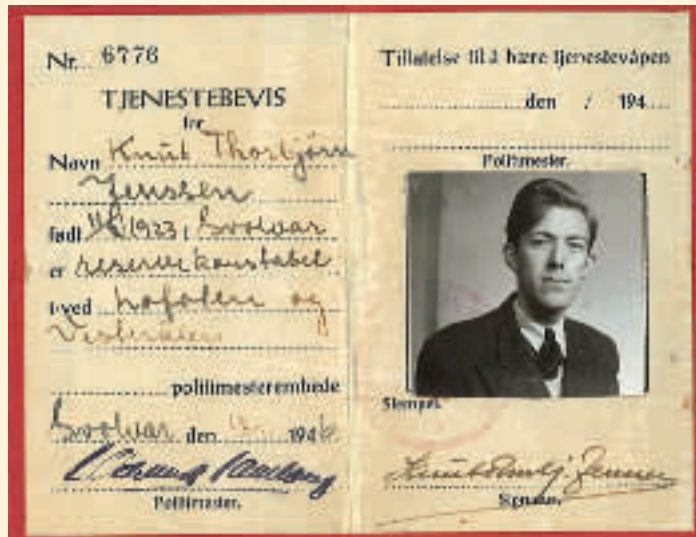 Nr. 6776
TJENESTEBEVIS
for
Navn Knut Thorbjørn
Jenssen
født 1923 i Svolvær
er reservekonstabel
ved Lofoten og
Vesterålen
politimesterembede
Svolvær den 194
Politimester.
Tillatelse til å bære tjenestevåpen
den / 194
Politimester.
Stempel.
Signatur.